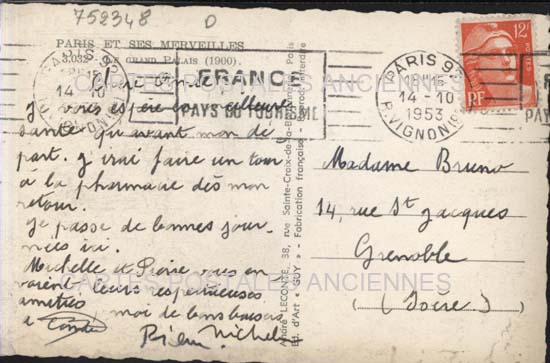 752348 D
PARIS ET SES MERVEILLES
3.032 GRAND PALAIS (1900).
FRANCE
PAYS DU TOURISME
Je vous espère en meilleure
santé qu'avant mon dé
part. J'irai faire un tour
à la pharmacie dès mon
retour.
Je passe de bonnes jour
nées ici.
Michelle et Pierre vous en
voient leurs respectueuses
amitiés
moi de bons baisers
Pierre Michel
André LECONTE, 38, rue Sainte-Croix-de-la-Bretonnerie, Paris
Ed. d'Art « GUY » - Fabrication française - Reprod. interdite
PARIS 98
18H15
14-10
1953
R. VIGNON (8e)
12F
RF
Madame Bruno
14, rue St Jacques
Grenoble
(Isère)
CARTES POSTALES ANCIENNES
CARTES POSTALES ANCIENNES